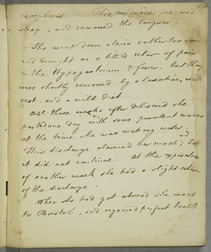 sleep, and removed the languor.
She went down stairs rather too soon
and brought on a little return of pain
in the Hypogastrium & fever. but they
were shortly removed by a laxative, with
rest, and a mild diet.
Abt. three weeks after delivered she
parted one day with some purulent matter
at the time she was making water.
This discharge alarmed her much; but
it did not continue. At the expiration
of another week she had a slight return
of the discharge.
When she had got abroad she went
to Bristol, and regained perfect health